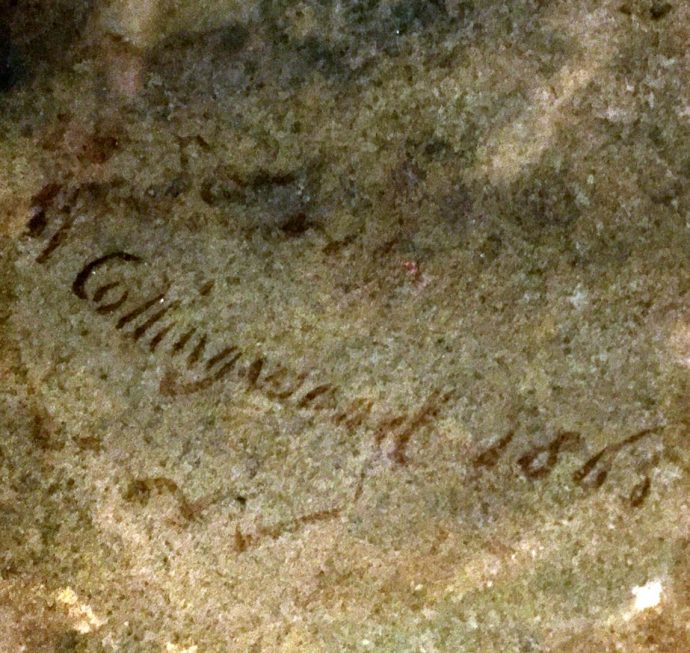 W Collingwood 1868